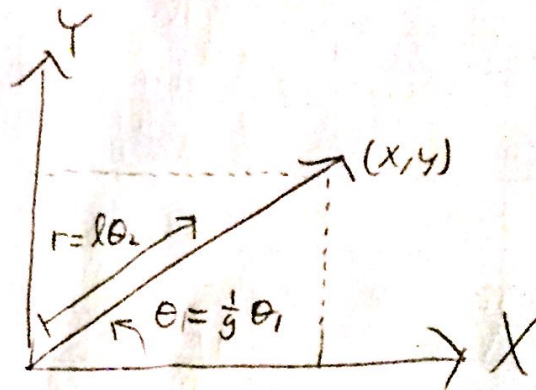 Y
(x,y)
r=lθ₂
θ₁=1/9 θ₁
X